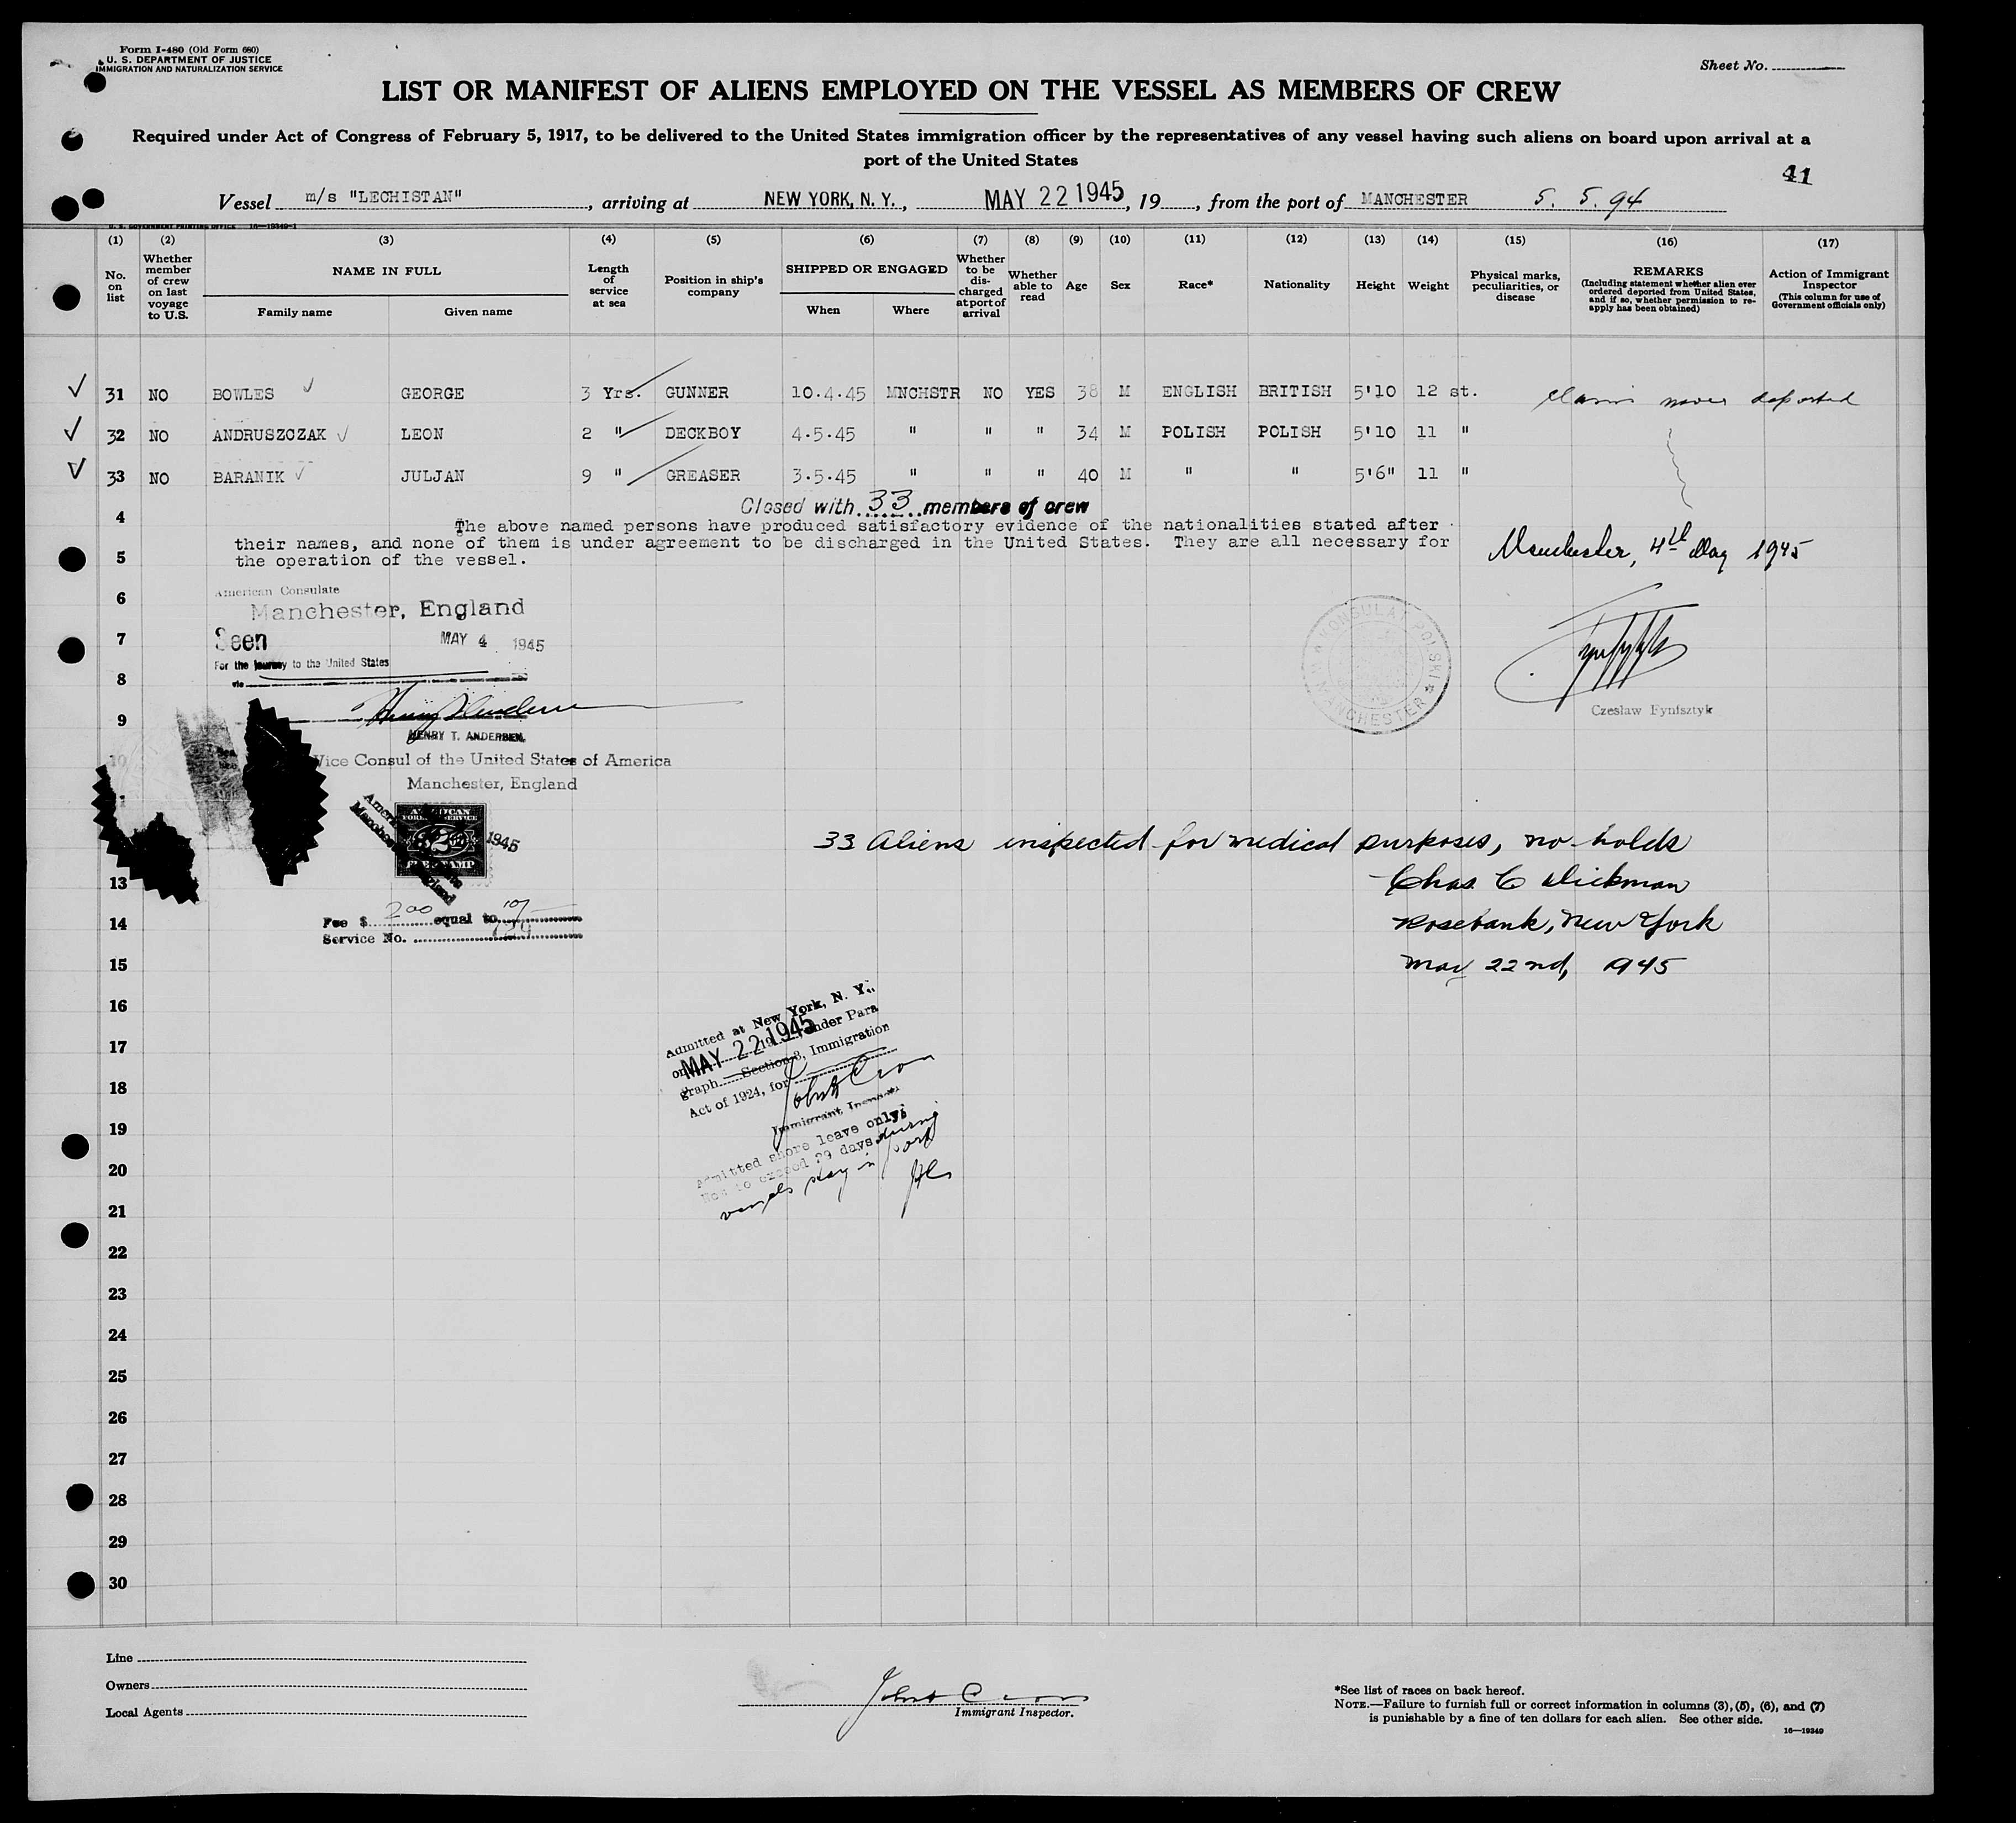 Form I-480 (Old Form 680)
U. S. DEPARTMENT OF JUSTICE
IMMIGRATION AND NATURALIZATION SERVICE
Sheet No.
LIST OR MANIFEST OF ALIENS EMPLOYED ON THE VESSEL AS MEMBERS OF CREW
Required under Act of Congress of February 5, 1917, to be delivered to the United States immigration officer by the representatives of any vessel having such aliens on board upon arrival at a
port of the United States
41
Vessel m/s "LECHISTAN", arriving at NEW YORK, N. Y., MAY 22 1945, 19, from the port of MANCHESTER 5. 5. 94
U. S. GOVERNMENT PRINTING OFFICE 16—19340-1
(1) (2) (3) (4) (5) (6) (7) (8) (9) (10) (11) (12) (13) (14) (15) (16) (17)
No. on list
Whether member of crew on last voyage to U.S.
NAME IN FULL
Family name
Given name
Length of service at sea
Position in ship's company
SHIPPED OR ENGAGED
When
Where
Whether to be discharged at port of arrival
Whether able to read
Age
Sex
Race*
Nationality
Height
Weight
Physical marks, peculiarities, or disease
REMARKS
(Including statement whether alien ever ordered deported from United States, and if so, whether permission to re-apply has been obtained)
Action of Immigrant Inspector
(This column for use of Government officials only)
√ 31 NO BOWLES √ GEORGE 3 Yrs. GUNNER 10.4.45 MNCHSTR NO YES 38 M ENGLISH BRITISH 5'10 12 st. Claims never deported
√ 32 NO ANDRUSZCZAK √ LEON 2 " DECKBOY 4.5.45 " " " 34 M POLISH POLISH 5'10 11 "
√ 33 NO BARANIK √ JULJAN 9 " GREASER 3.5.45 " " " 40 M " " 5'6" 11 "
Closed with 33 members of crew
4
The above named persons have produced satisfactory evidence of the nationalities stated after
their names, and none of them is under agreement to be discharged in the United States. They are all necessary for
the operation of the vessel.
Manchester, 4th May 1945
5
American Consulate
6
Manchester, England
7
Seen MAY 4 1945
For the journey to the United States
8
via
KONSULAT POLSKI
MANCHESTER
9
Czesław
HENRY T. ANDERSEN
10
Vice Consul of the United States of America
Manchester, England
AMERICAN
FOREIGN SERVICE
$2
FEE STAMP
1945
33 Aliens inspected for medical purposes, no holds
13
Chas. C Dickman
14
Rosebank, New York
Fee $ 2.00 equal to 10/-
Service No.
15
May 22nd, 1945
16
Admitted at New York, N. Y.,
17
on MAY 22 1945 19 under Para
graph Section 3, Immigration
18
Act of 1924, for
Immigrant Inspector
19
Admitted shore leave only;
20
Not to exceed 29 days during
vessels stay in port
21
22
23
24
25
26
27
28
29
30
Line
Owners
Local Agents
Immigrant Inspector.
*See list of races on back hereof.
NOTE.—Failure to furnish full or correct information in columns (3), (5), (6), and (7)
is punishable by a fine of ten dollars for each alien. See other side.
16—19340